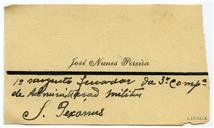 José Nunes Pereira
1º sargento da 3ª Compª
de Administração Militar
S.
LISBOA